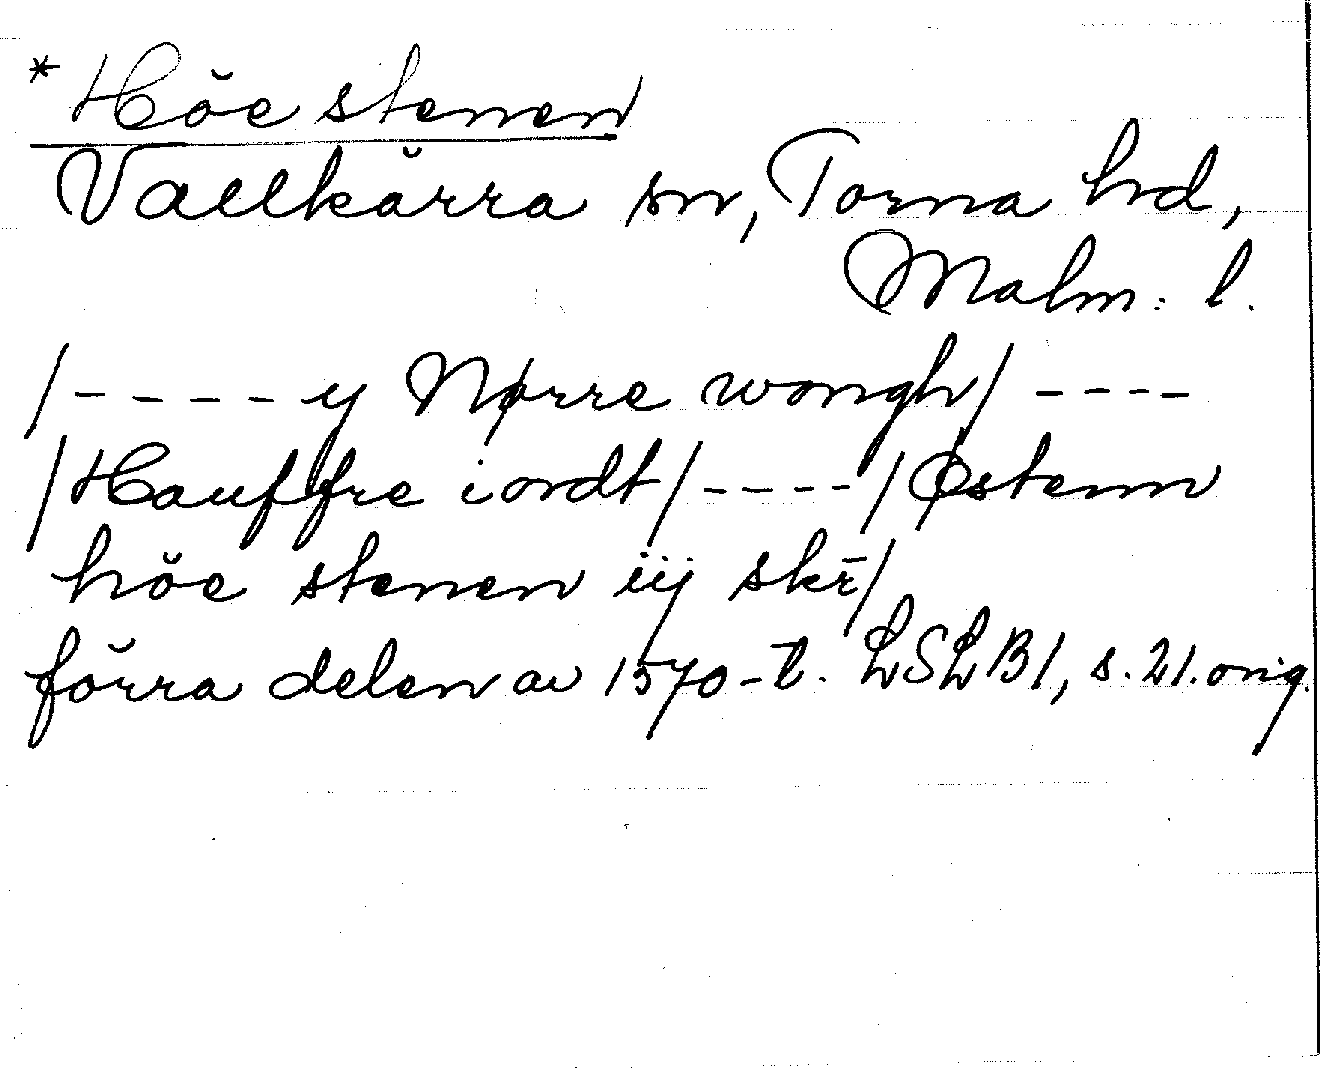 *Höe stenen
Vallkärra sn, Torna hd,
Malm. l.
/-----y Nørre wongh/----
/Hauffre iordt/----/Østenn
höe stenen iij skr̄/
förra delen av 1570-t. LSLB1, s. 21. orig.